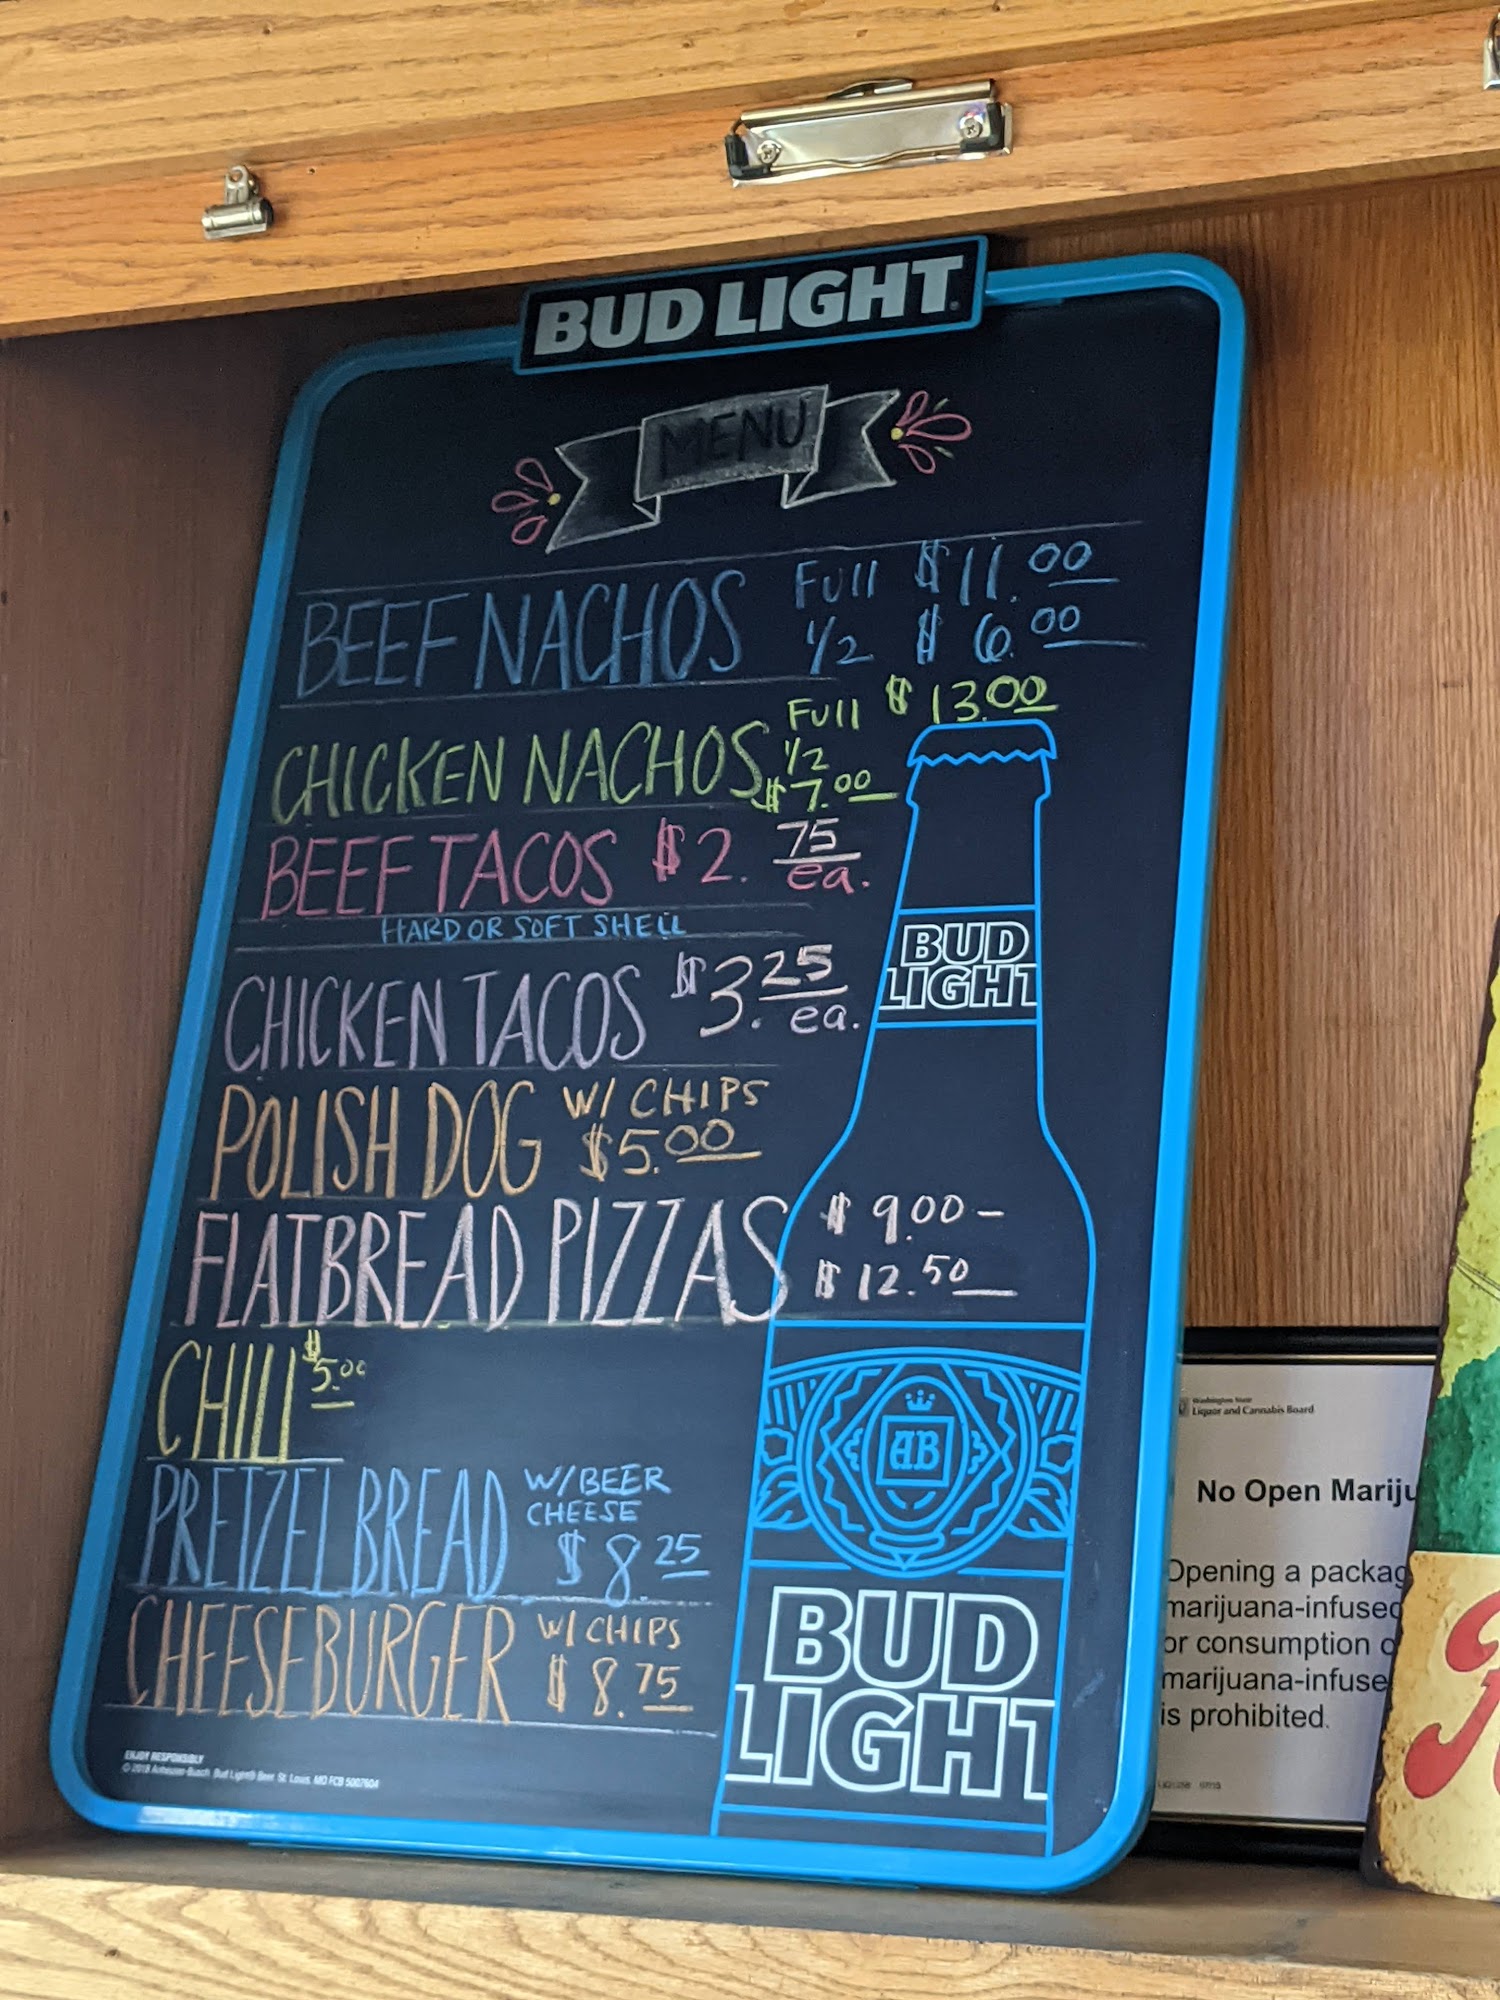 BUD LIGHT
MENU
BEEF NACHOS Full $11.00
1/2 $6.00
CHICKEN NACHOS Full $13.00
1/2
$7.00
BEEF TACOS $2.75 ea.
HARD OR SOFT SHELL
CHICKEN TACOS $3.25 ea.
POLISH DOG W/ CHIPS
$5.00
FLATBREAD PIZZAS $9.00 -
$12.50
CHILI $5.00
PRETZEL BREAD W/BEER
CHEESE
$8.25
CHEESEBURGER W/ CHIPS
$8.75
BUD
LIGHT
AB
BUD
LIGHT
ENJOY RESPONSIBLY
© 2018 Anheuser-Busch, Bud Light® Beer, St. Louis, MO FCB 5007604
Washington State
Liquor and Cannabis Board
No Open Mariju
Opening a packag
marijuana-infused
or consumption o
marijuana-infuse
is prohibited.